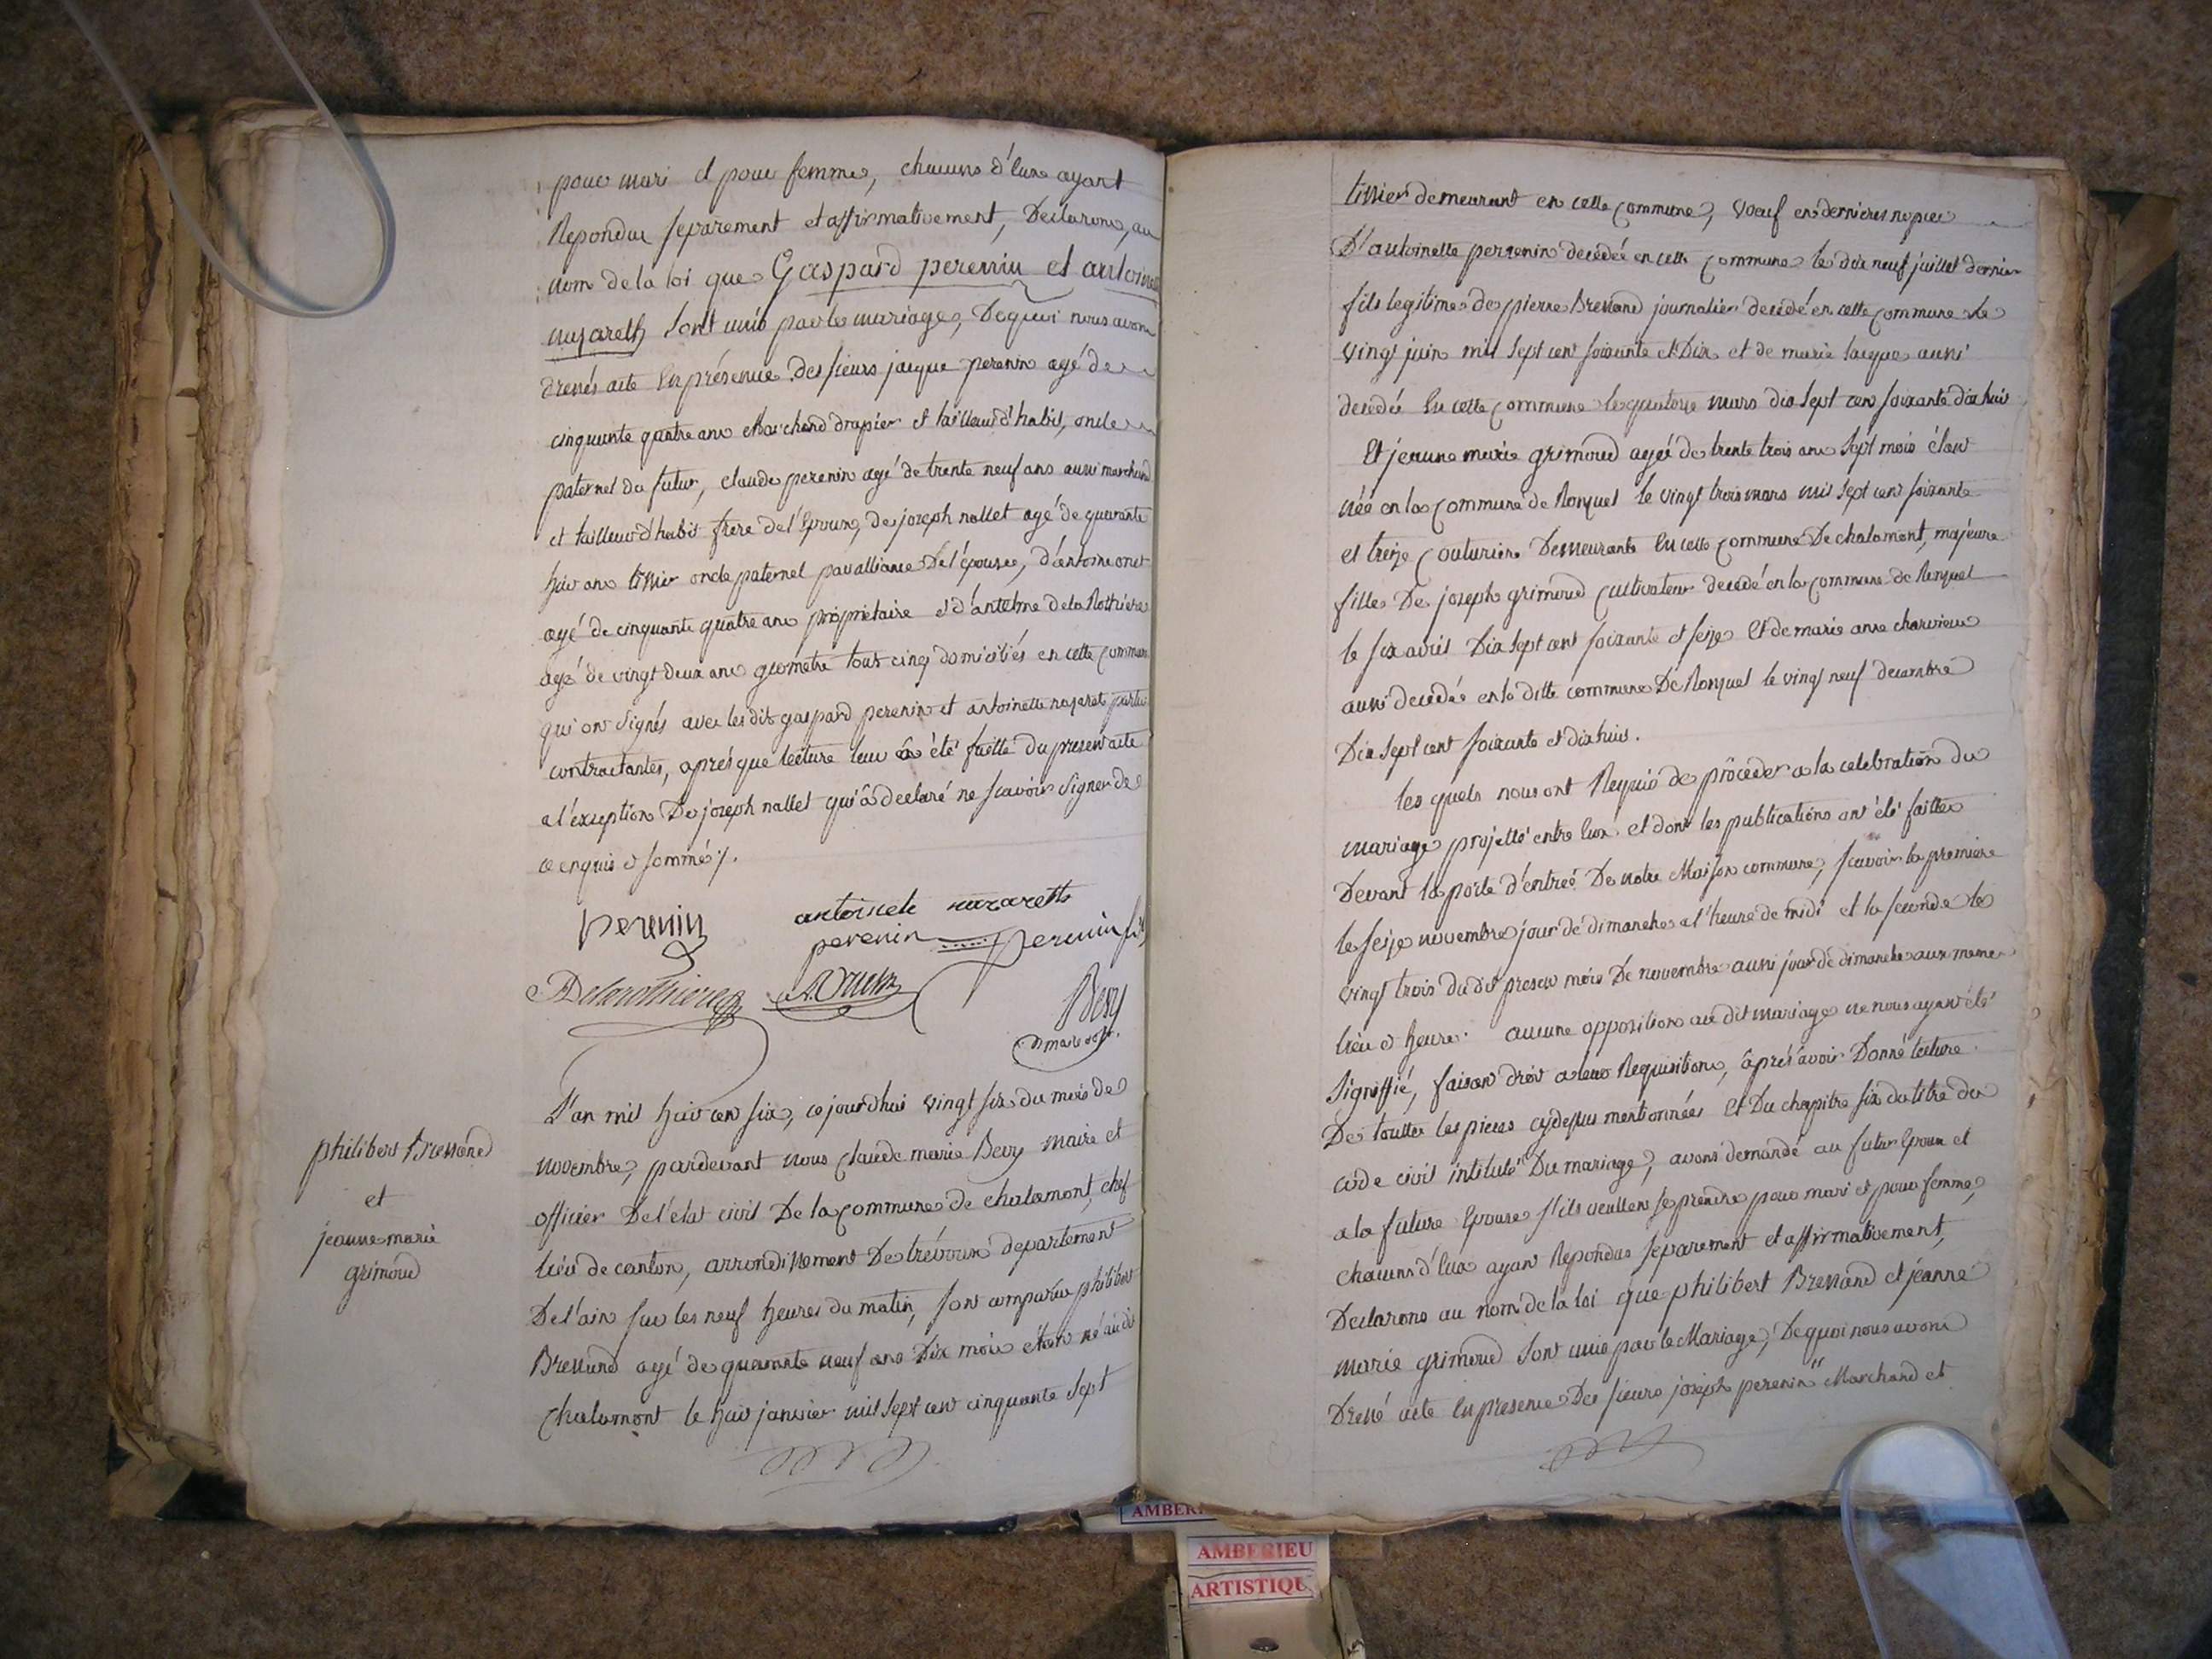 pour mari et pour femme, chacuns d'eux ayant
Repondue separement et affirmativement, Declarons, au
nom de la loi que Gaspard perenin et antoinette
nazareth sont unis par le mariage, De quoi nous avons
dressés acte En présence des sieurs jacque perenin agé de
cinquante quatre ans Marchand drapier et tailleur d'habit, oncle
paternel du futur, claude perenin agé de trente neuf ans aussi marchand
et tailleur d'habit frere de l'Epoux, de joseph nallet agé de quarante
huit ans tissier oncle paternel par alliance De l'épousee, d'antoine
agé de cinquante quatre ans propriétaire et d'antelme de la Rothiere
agé de vingt deux ans géometre tout cinq domiciliés en cette commune
qui ont signés avec les dits gaspard perenin et antoinette nazaret parties
contractantes, aprés que lecture leur â été faitte du present acte
a l'éxception De joseph nallet qui â declaré ne scavoir signer de
ce enquis et sommé ⁒.
perenin antoinete nazareth
perenin perenin fils
A Delarothiere
Bevy
maire
L'an mil huit cent six, ce jourdhui vingt six du mois de
novembre, pardevant nous Claude marie Bevy maire et
officier De l'état civil De la commune de chalamont, chef
lieu de canton, arrondissement De trévoux departement
De l'ain sur les neuf heures du matin, sont comparus philibert
Bressand agé de quarante neuf ans Dix mois etant né audit
Chalamont le huit janvier mil sept cent cinquante sept
philibert Bressand
et
jeanne marie
grimoud
tissier demeurant en cette commune, voeuf en dernieres nopces
D'antoinette perrenin decédée en cette commune le dix neuf juillet dernier
fils legitime de pierre Bressand journalier decédé en cette commune le
vingt juin mil sept cent soixante et Dix et de marie jacque aussi
decedée En cette commune le quatorze mars dix sept cent soixante dix huit
Et jeanne marie grimoud agée de trente trois ans sept mois étant
née en la commune de Ronzuel le vingt trois mars mil sept cent soixante
et treize Couturiere Demeurante En cette commune De chalamont, majeure
fille De joseph grimoud Cultivateur decedé en la commune de Ronzuel
le six avril Dix sept cent soixante et seize Et de marie anne charvieux
aussi decedée en la ditte commune De Ronzuel le vingt neuf decembre
Dix sept cent soixante et dix huit.
les quels nous ont Requis de proceder a la celebration du
mariage projetté entre Eux et dont les publications ont été faittes
Devant la porte d'entreé De notre Maison commune, scavoir la premiere
le seize novembre jour de dimanche a l'heure de midi et la seconde le
vingt trois du dit present mois De novembre aussi jour de dimanche aux memes
lieu et heure. aucune opposition au dit mariage ne nous ayant été
signiffié, faisant droit a leur Requisition, âprés avoir Donné lecture
De touttes les pieces cy dessus mentionnées Et Du chapitre six du titre du
code civil intitulé Du mariage, avons demandé au futur Epoux et
a la future Epouse s'ils veullent se prendre pour mari et pour femme,
chacuns d'Eux ayant Repondus separement et affirmativement,
Declarons au nom de la loi que philibert Bressand et jeanne
marie grimoud sont unis par le Mariage, De quoi nous avons
Dressé acte En presence Des sieurs joseph perenin Marchand et
AMBERIEU
ARTISTIQU